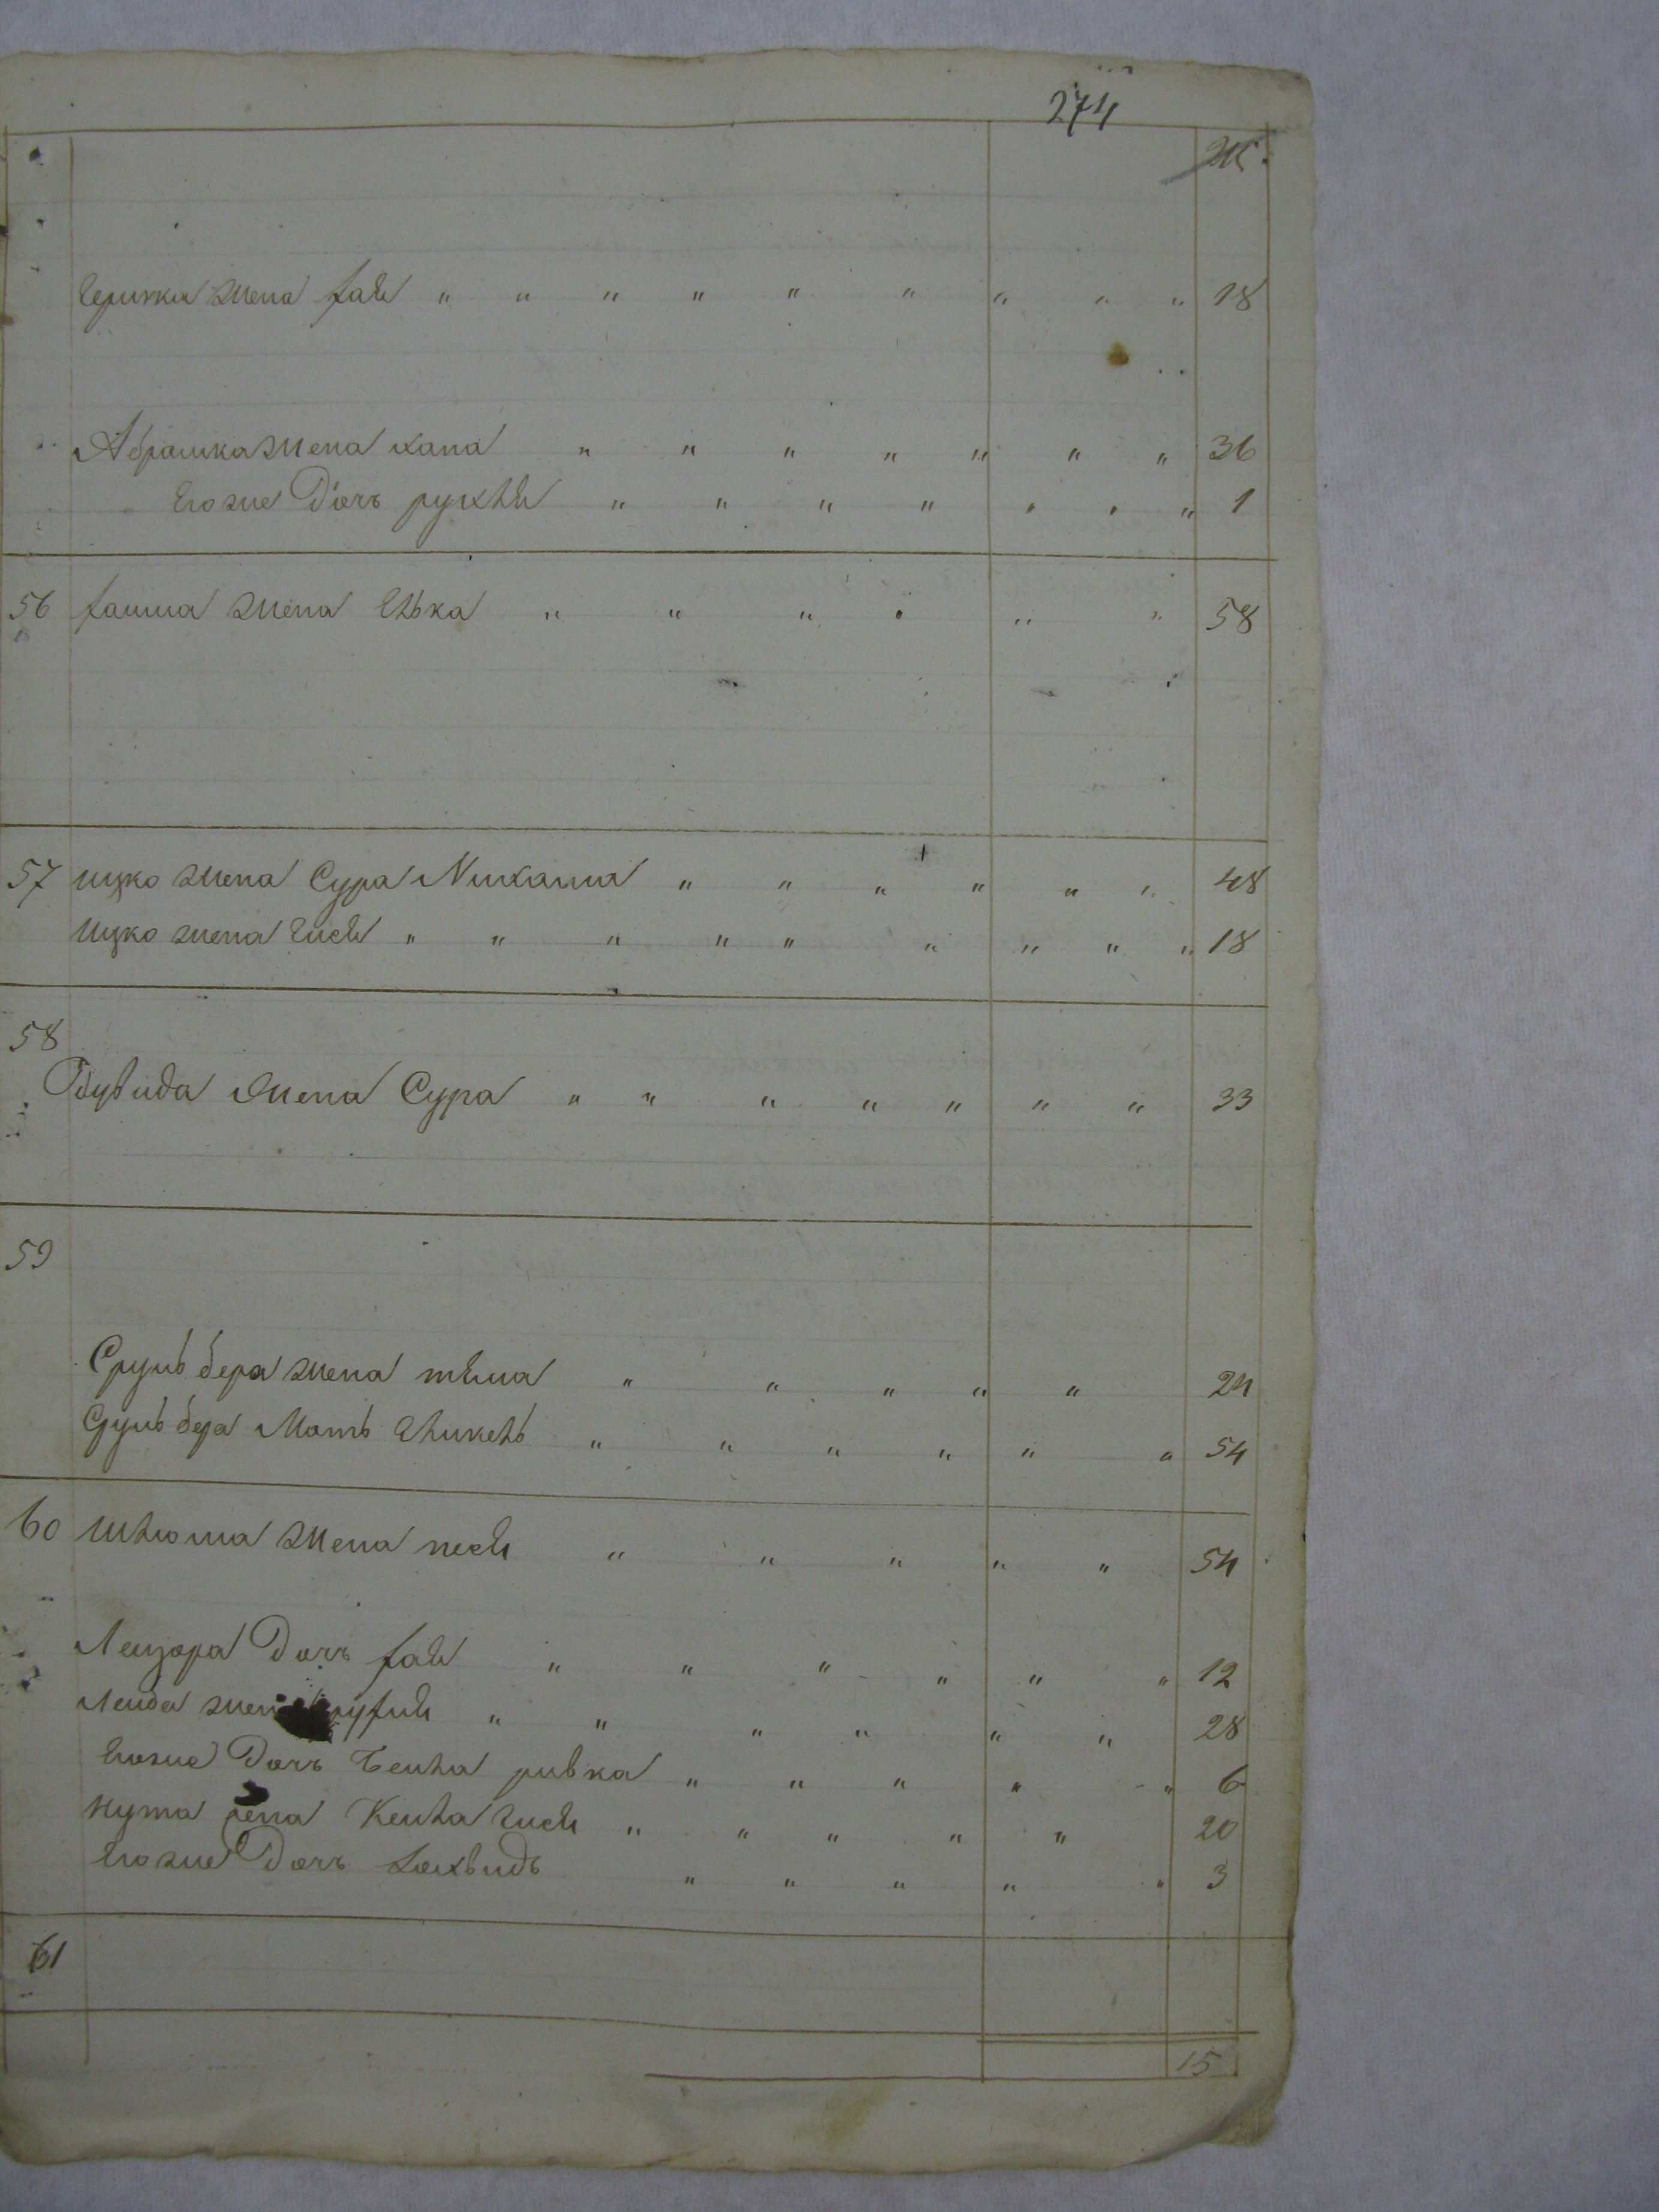 274
Гершка жена хая " " " " " " " " " 18
Абрашка жена хана " " " " " " " 36
Его же Дочь рухля " " " " " " " 1
56 хаима жена Елька " " " " " " 58
57 ицко жена Сура Михама " " " " " " 48
Ицко жена Гися " " " " " " " " " 18
58
Дувида жена Сура " " " " " " " 33
59
Сруль бера жена тема " " " " " 24
Сруль бера Мать " " " " " " 54
60 Шлиома жена песя " " " " " 54
Лейзора Дочь хая " " " " " " 12
Лейба жена " " " " " " 28
Его же Дочь бейла ривка " " " " " 6
Нута жена Кейла гися " " " " " 20
Его же Дочь " " " " " 3
61
15